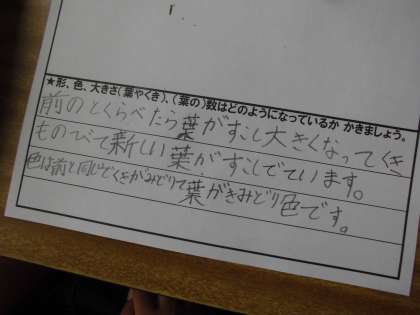 ★形、色、大きさ(葉やくき)、(葉の)数はどのようになっているか かきましょう。
前のとくらべたら葉がすこし大きくなってくき
ものびて新しい葉がすこしでています。
色は前と同じでくきがみどりで葉がきみどり色です。